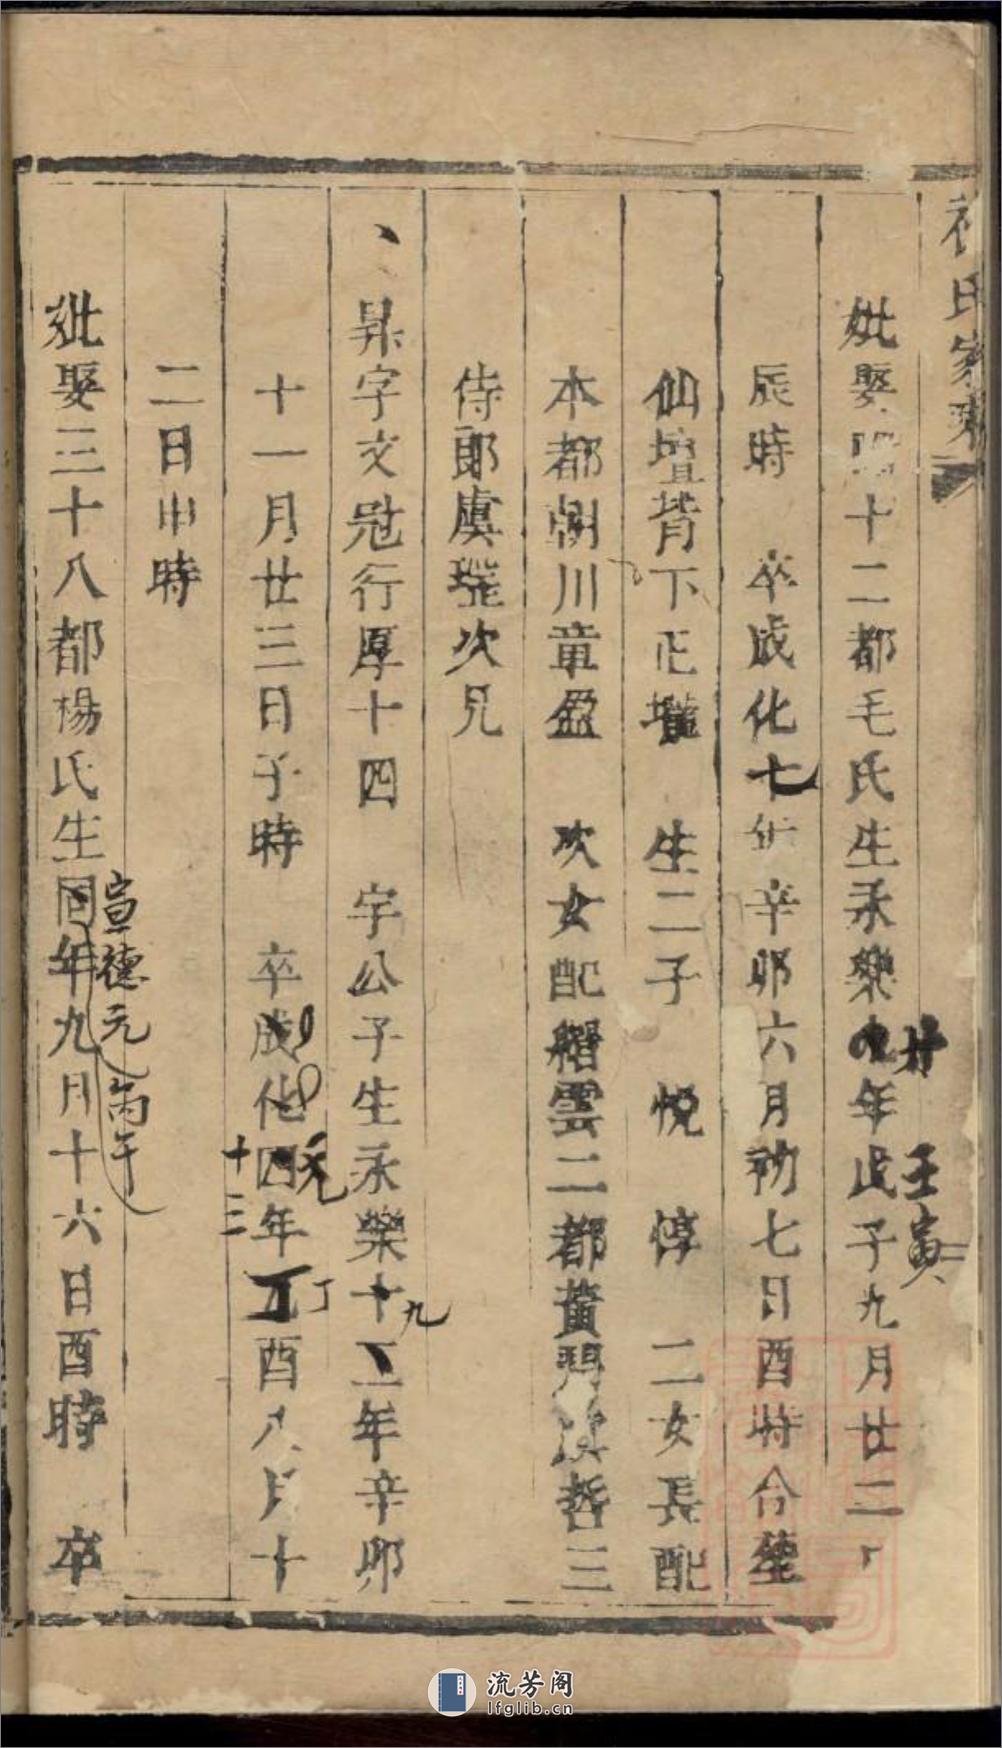 氏家乘
妣娶四十二都毛氏生永樂九年戊子九月廿二
廿 壬寅
辰時 卒成化七年辛卯六月初七日酉時合塟
仙壇背下正壠 生二子 悅 惇 二女長配
本都朝川章盈 次女配縉雲二都黃碧陳哲三
侍郎虞瑆次兄
昇字文冠行厚十四 字公子生永樂十二年辛卯
九
十一月廿三日子時 卒成化四年丁酉八月十
元 丁
十三
二日申時
妣娶三十八都楊氏生同年九月十六日酉時 卒
宣德元 丙午
流芳阁
lfglib.cn